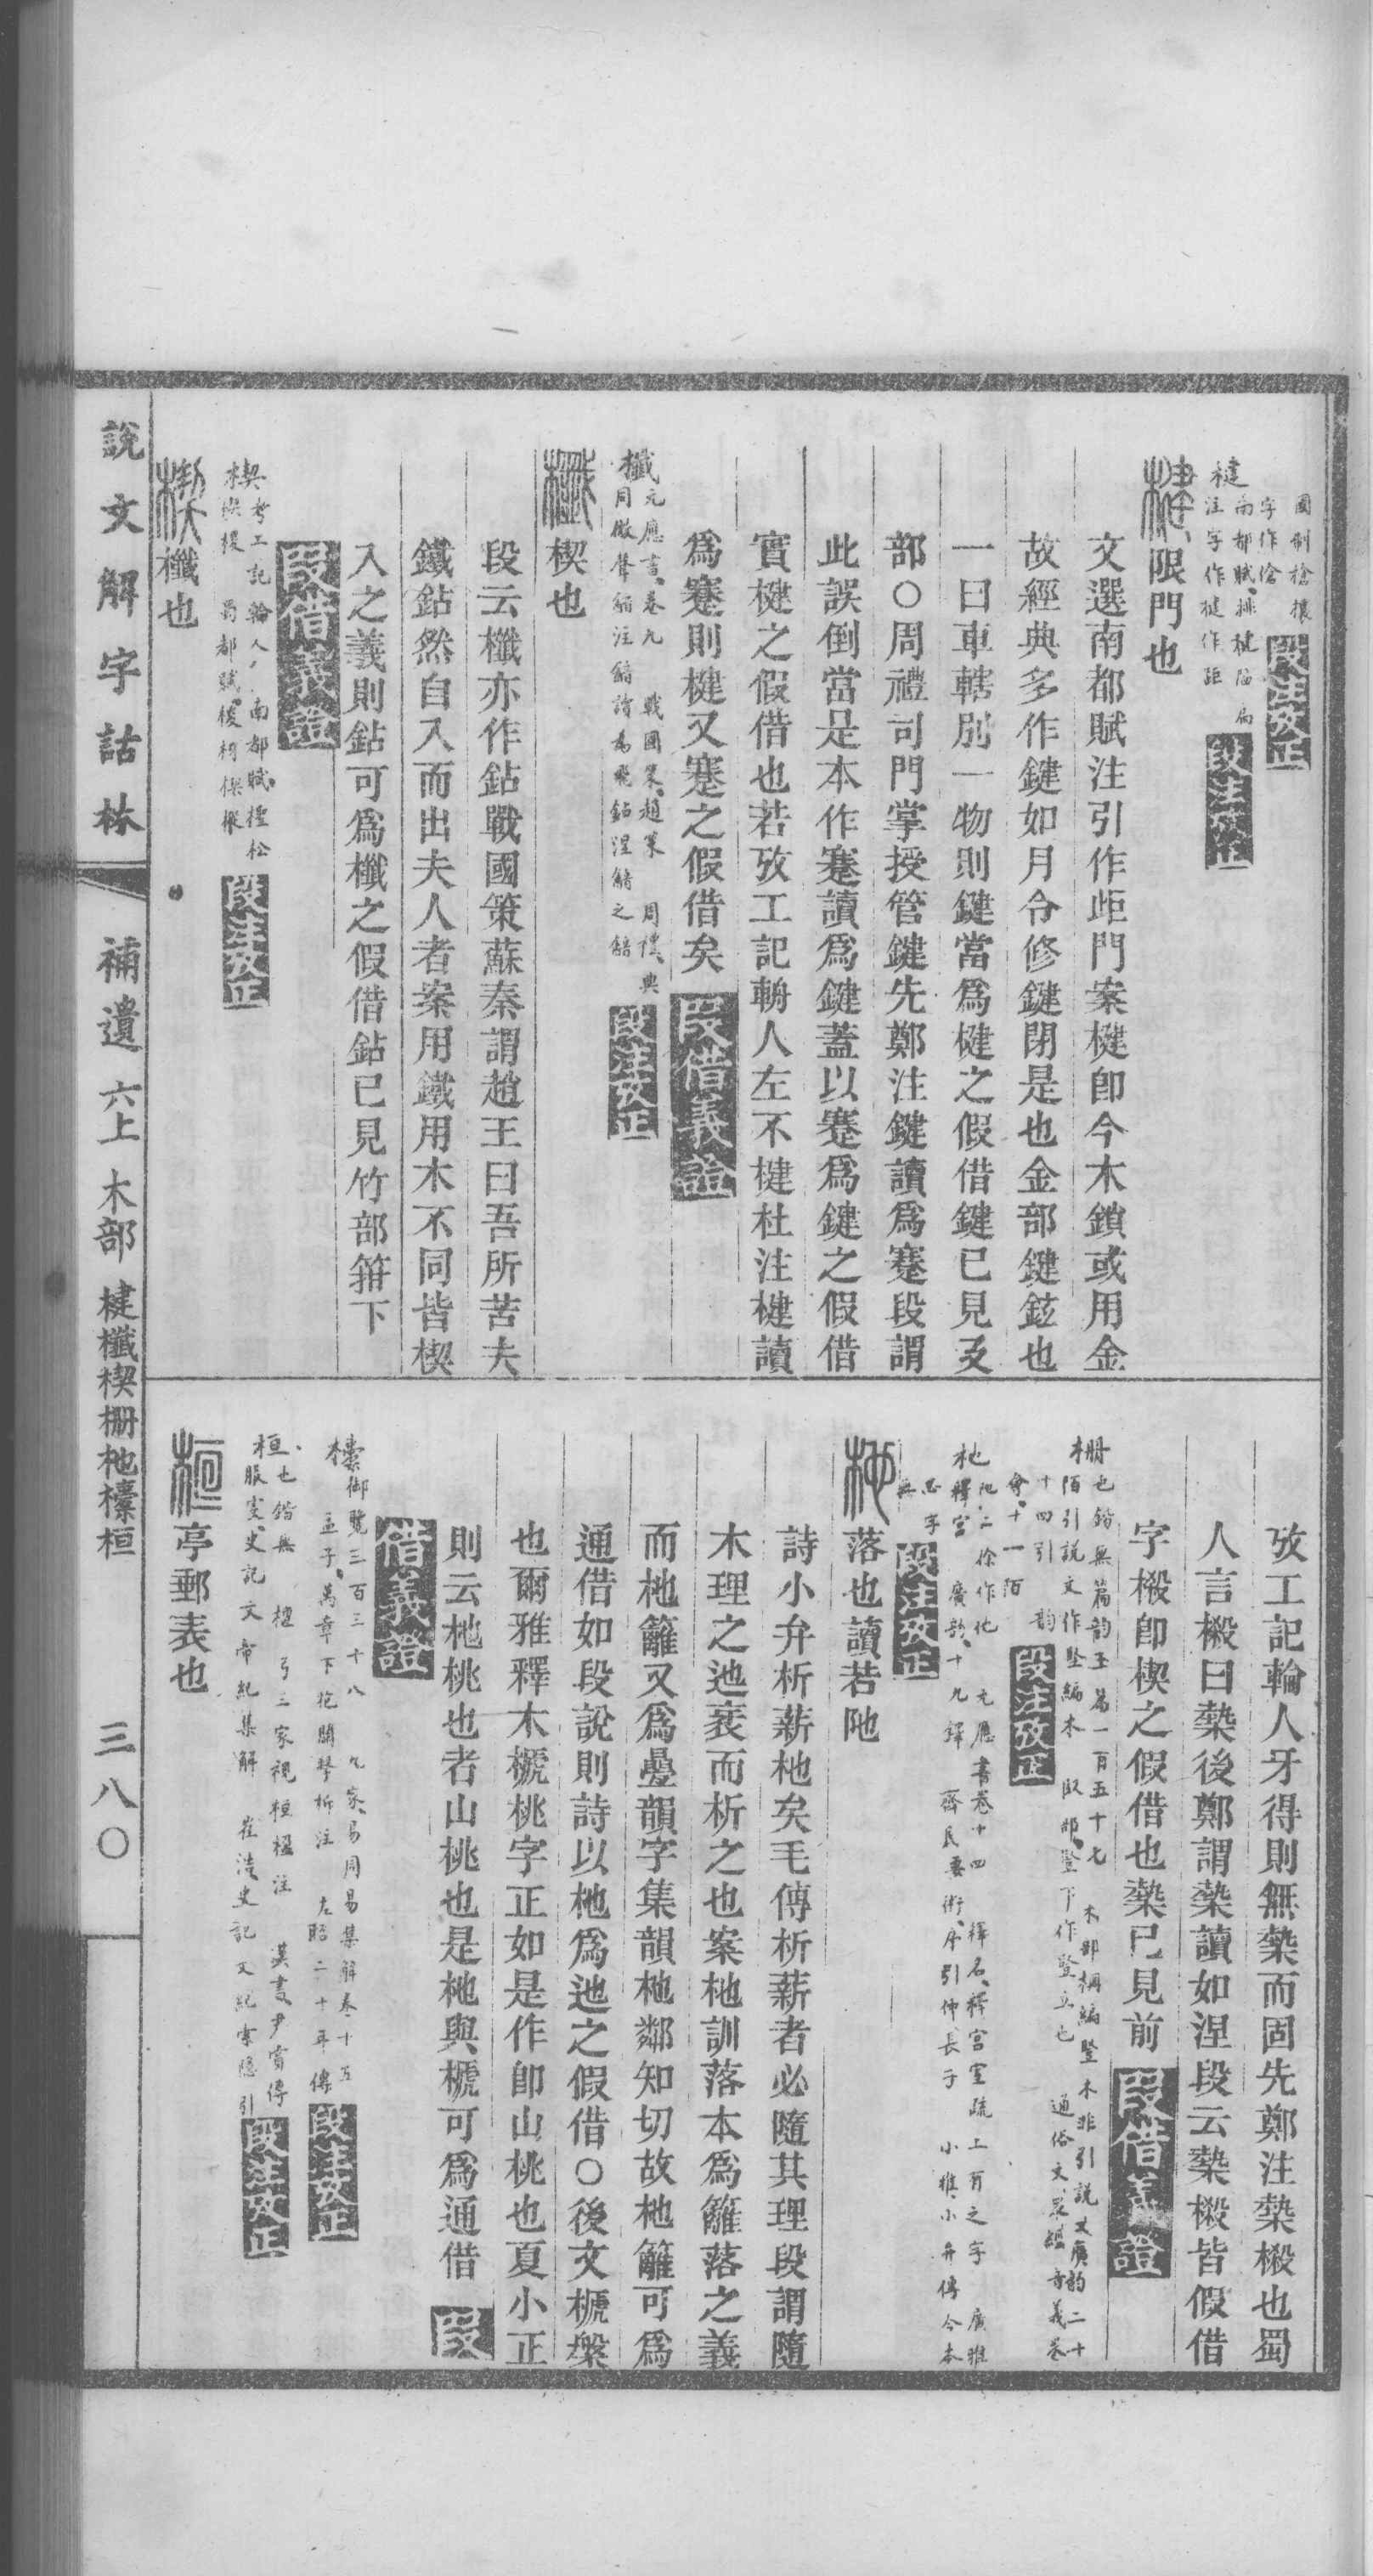 國制槍攘
字作傖
段注攷正
楗南都賦排楗陷扃
注字作楗作距
段注攷正
限門也
文選南都賦注引作歫門案楗卽今木鎖或用金
故經典多作鍵如月令修鍵閉是也金部鍵鉉也
一曰車轄別一物則鍵當爲楗之假借鍵已見夊
部○周禮司門掌授管鍵先鄭注鍵讀爲蹇段謂
此誤倒當是本作蹇讀爲鍵蓋以蹇爲鍵之假借
實楗之假借也若攷工記輈人左不楗杜注楗讀
爲蹇則楗又蹇之假借矣
段借義證
櫼元應書卷九 戰國策趙策 周禮典
同微聲
段注攷正
楔也
段云櫼亦作鉆戰國策蘇秦謂趙王曰吾所苦夫
鐵鉆然自入而出夫人者案用鐵用木不同皆楔
入之義則鉆可爲櫼之假借鉆已見竹部箝下
段借義證
楔考工記輪人 南都賦楔松
蜀都賦
段注攷正
櫼也
攷工記輪人牙得則無槷而固先鄭注槷樧也蜀
人言樧曰槷後鄭謂槷讀如涅段云槷樧皆假借
字樧卽楔之假借也槷已見前
段借義證
柵也鍇無篇韵玉篇一百五十七 木部柵編豎木非引說文廣韵二十
陌引說文作豎編木 臤部豎下作豎立也 通俗文眾經音義卷
十四引 韵
會十一陌
段注攷正
杝 二徐作杝 元應書卷十四 釋名釋宮室疏上有之字 廣雅
釋宮 廣韵十九鐸 齊民要術序引仲長子 小雅小弁傳今本
段注攷正
落也讀若阤
詩小弁析薪杝矣毛傳析薪者必隨其理段謂隨
木理之迆衺而析之也案杝訓落本爲籬落之義
而杝籬又爲疊韻字集韻杝鄰知切故杝籬可爲
通借如段說則詩以杝爲迆之假借○後文榹槃
也爾雅釋木榹桃字正如是作卽山桃也夏小正
則云杝桃也者山桃也是杝與榹可爲通借
段
借義證
㯱御覽三百三十八 九家易周易集解卷十五
孟子萬章下抱關擊柝注 左昭二十年傳
段注攷正
桓也鍇無 檀弓三家視桓楹注 漢書尹賞傳
服虔史記文帝紀集解 崔浩史記文紀索隱引
段注攷正
亭郵表也
說文解字詁林
補遺 六上 木部 楗櫼楔柵杝㯱桓
三八○